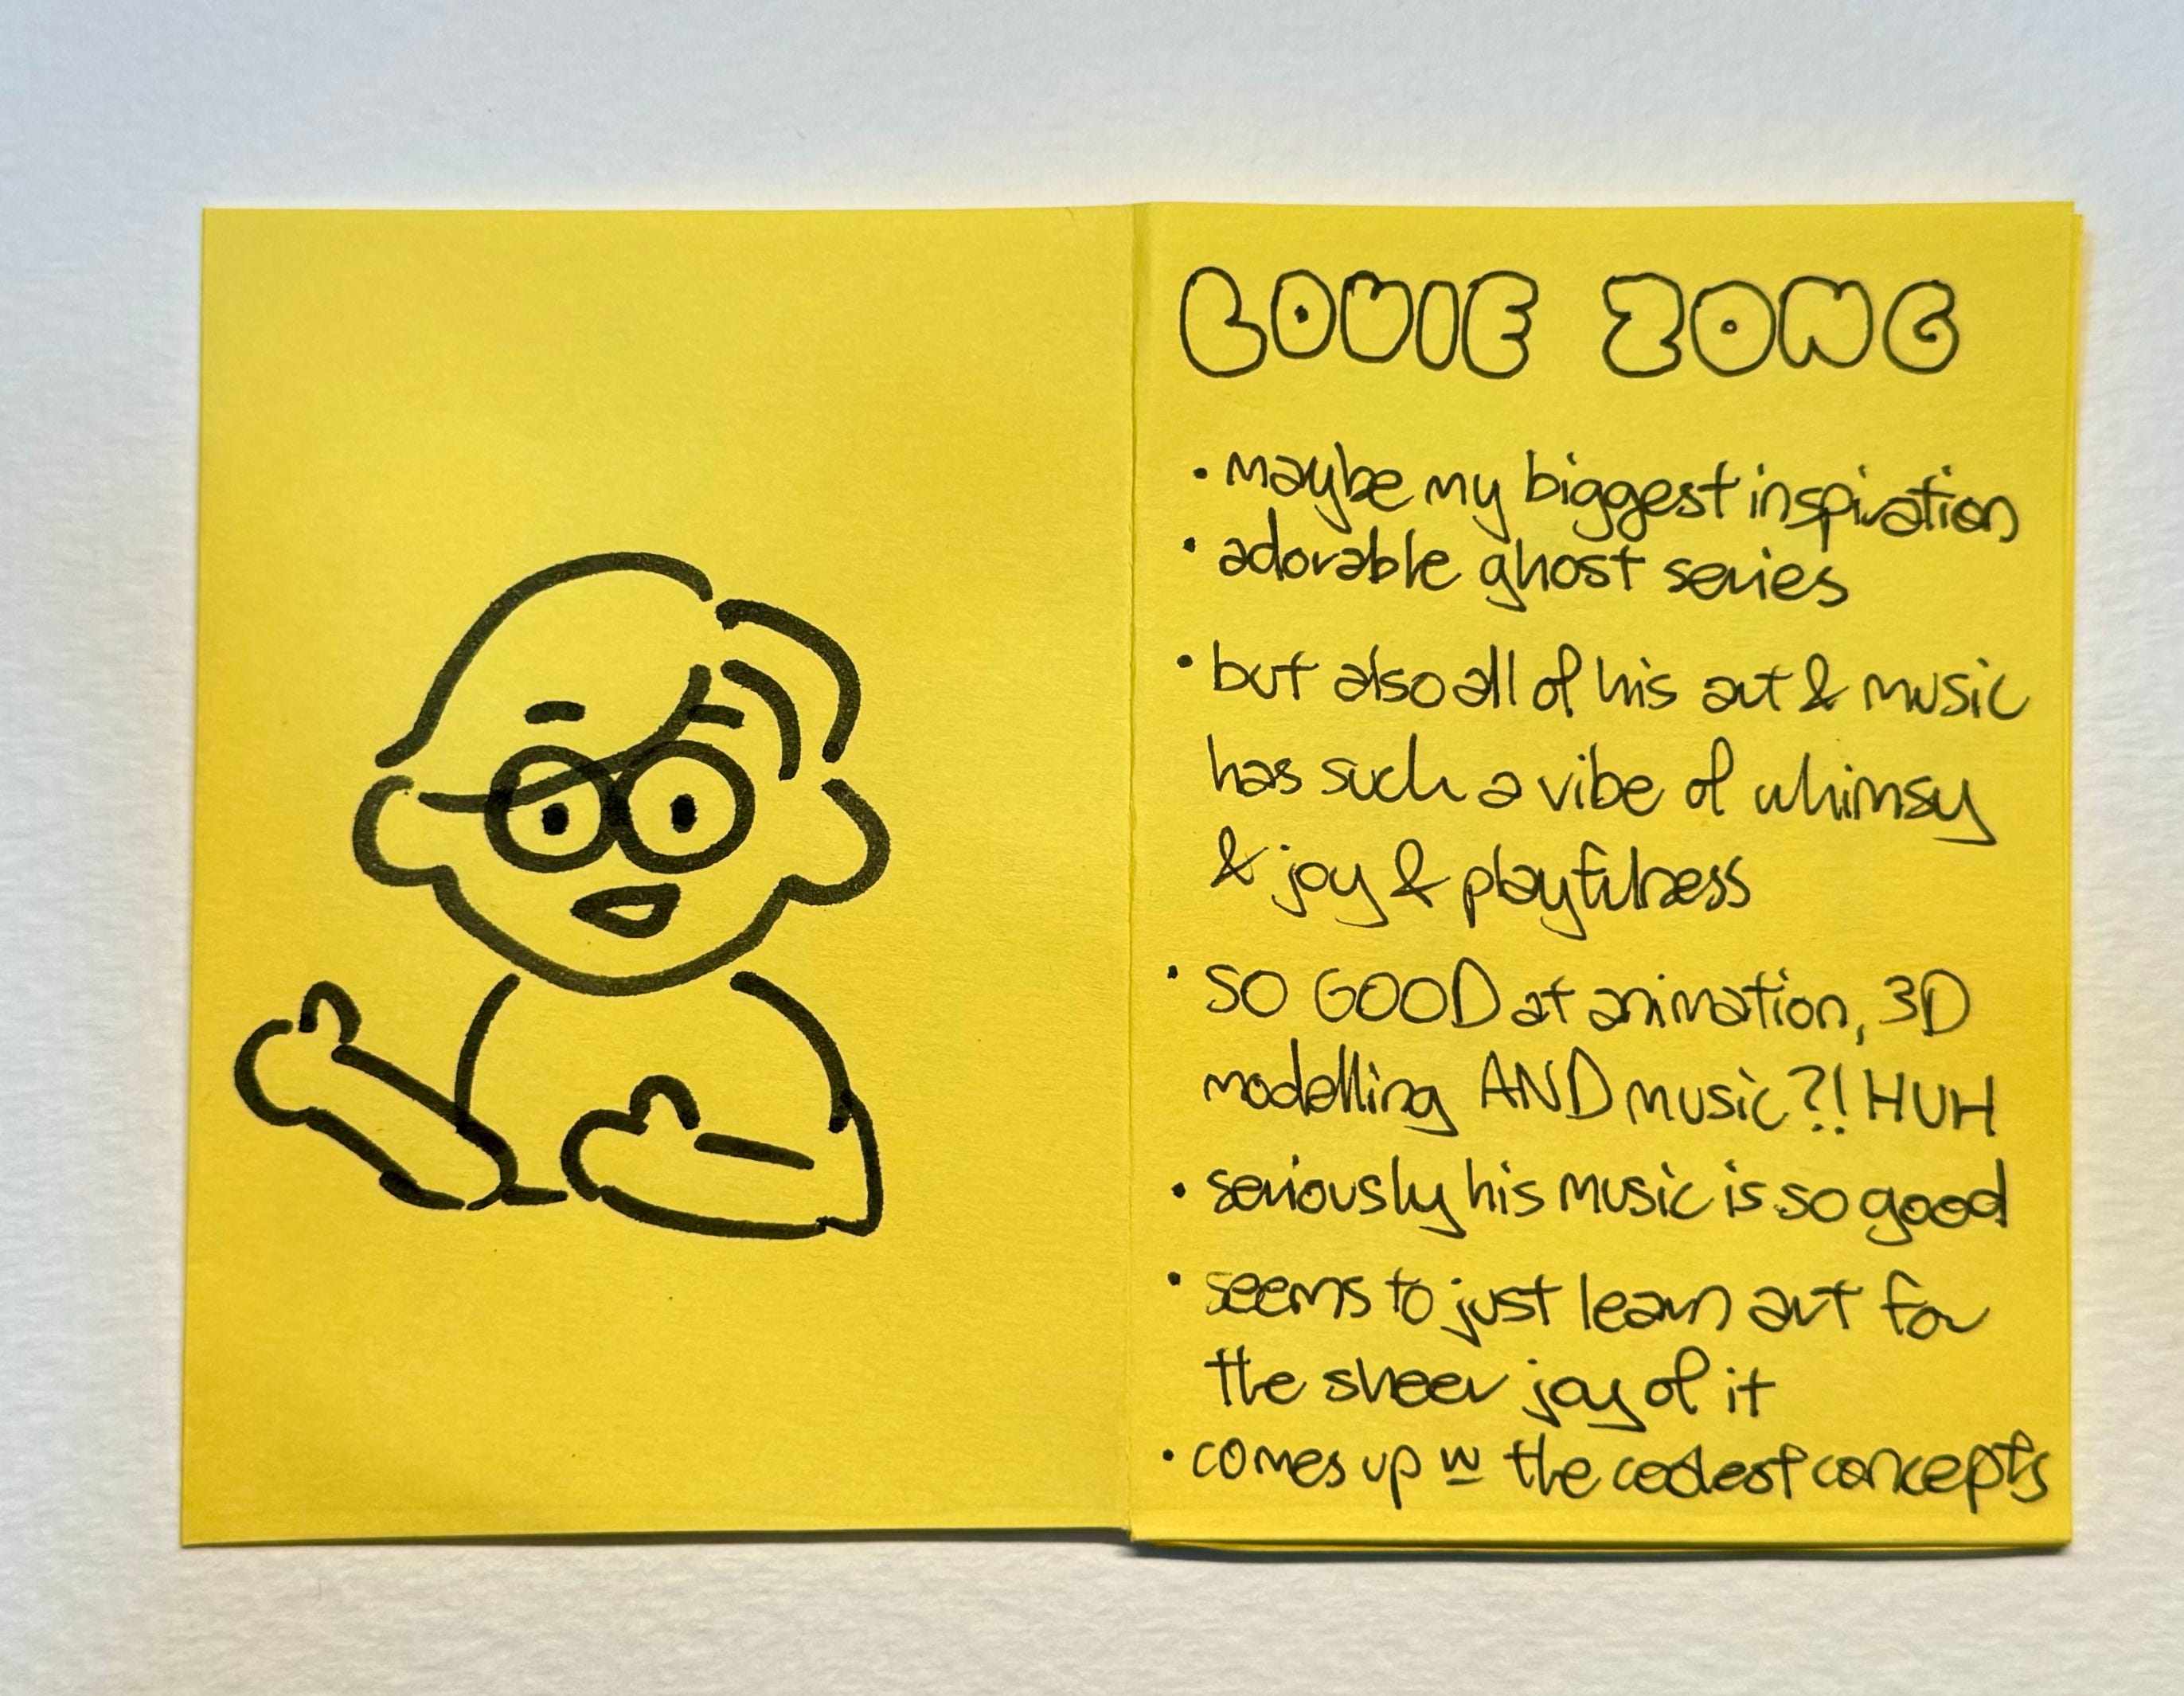 LOUIE ZONG
• maybe my biggest inspiration
• adorable ghost series
• but also all of his art & music
has such a vibe of whimsy
& joy & playfulness
• SO GOOD at animation, 3D
modelling AND music?! HUH
• seriously his music is so good
• seems to just learn art for
the sheer joy of it
• comes up w the coolest concepts